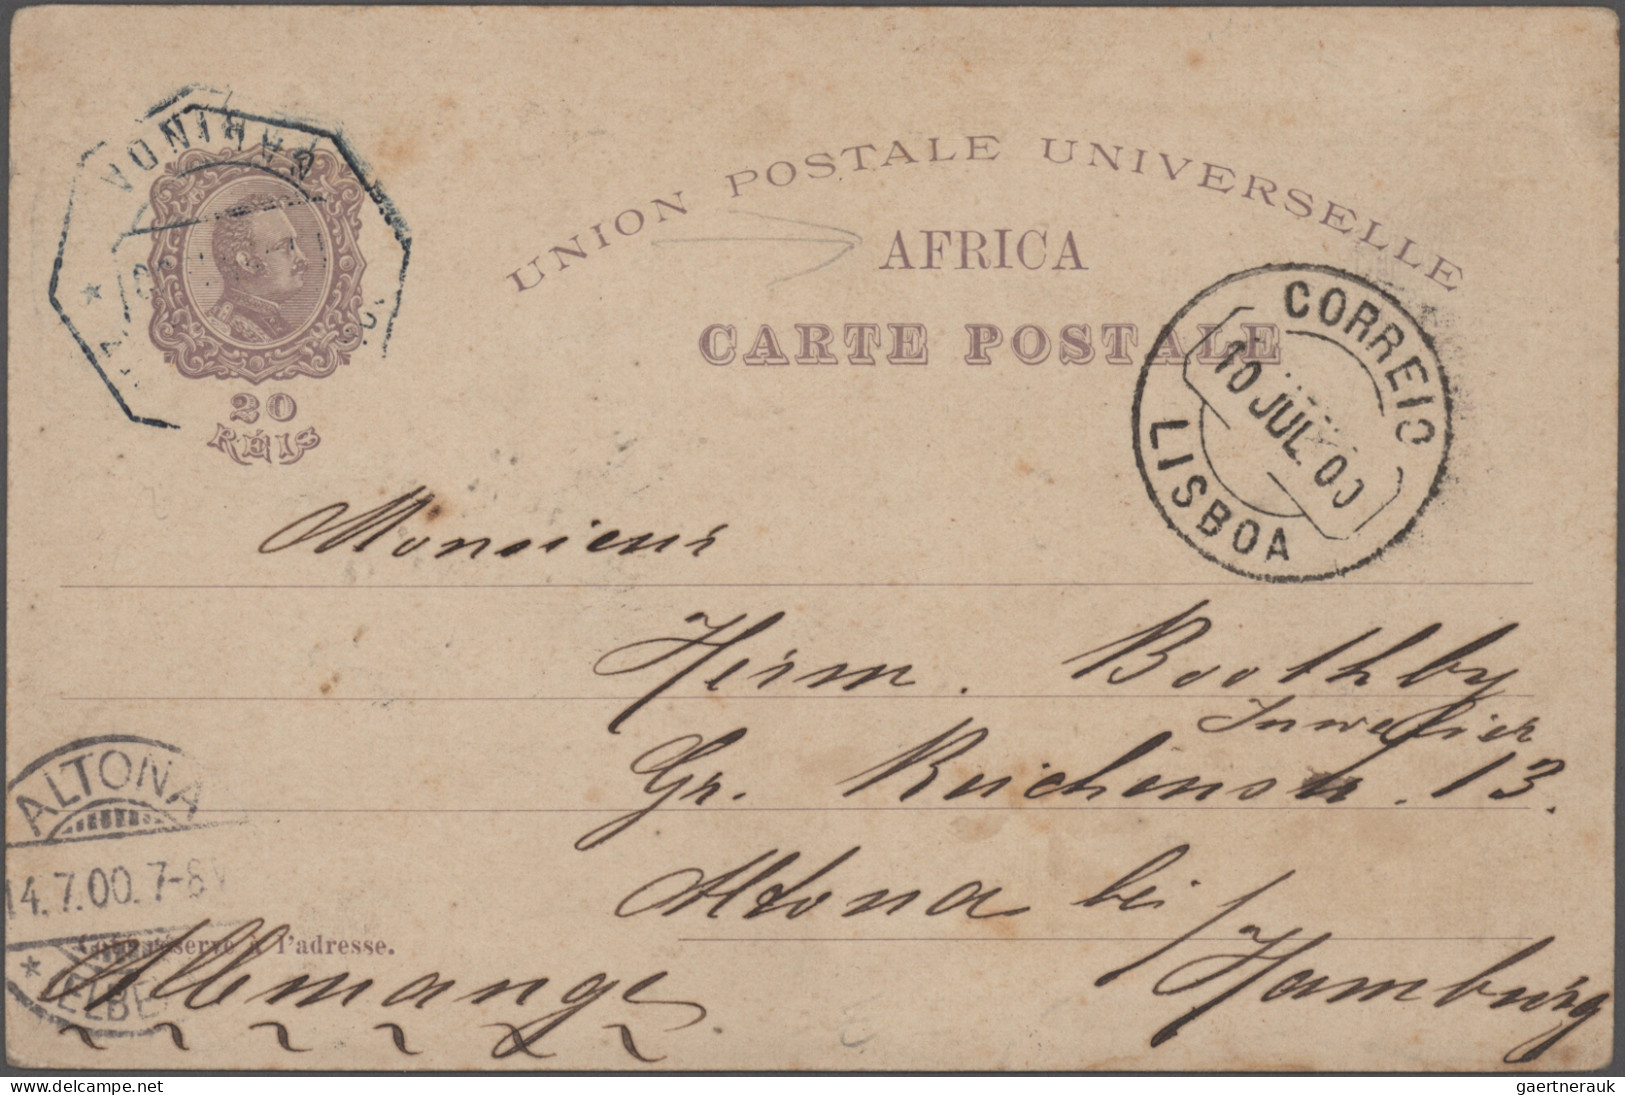 UNION POSTALE UNIVERSELLE
AFRICA
CARTE POSTALE
20
RÉIS
CORREIO
10 JUL 00
LISBOA
Monsieur
Herm. Boothby
Juwelier
Gr. Reichenstr. 13.
Altona bei
Hamburg
Allemange.
ALTONA
14.7.00.7-8V
* ELBE
l'adresse.
gaertnerauk